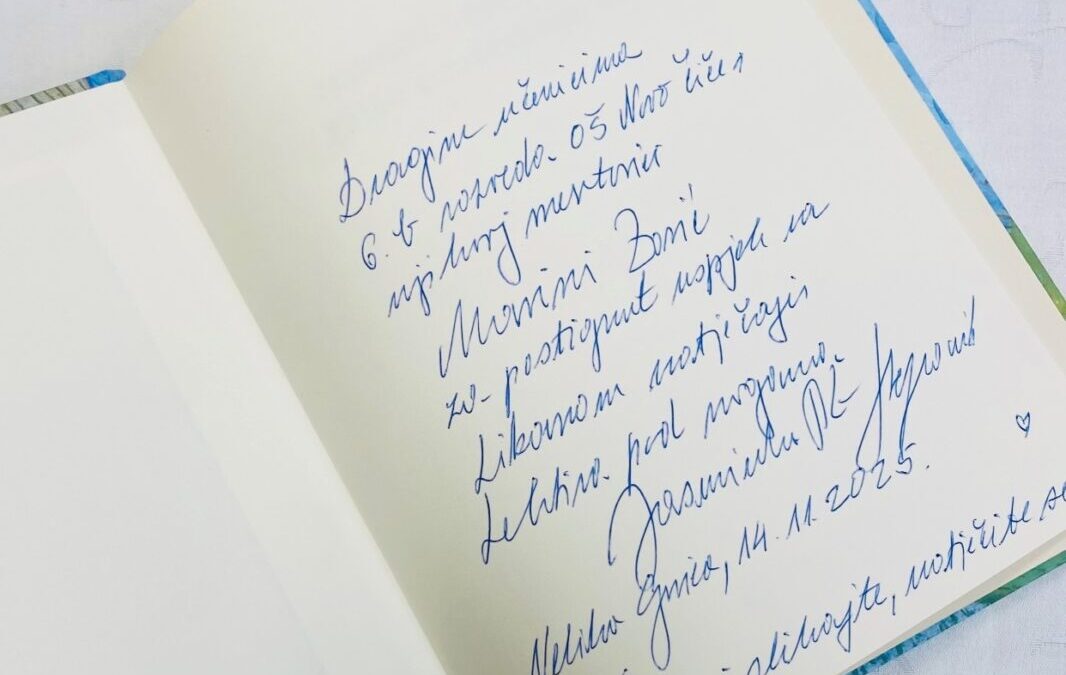 Dragim učenicima
6. b razreda OŠ Novo Čiče i
njihovoj mentorici
Marini Zorić
za postignut uspjeh na
Likovnom natječaju
pod nogama.
Jasminka
Velika Gorica, 14. 11. 2025.
slikajte, natječite se